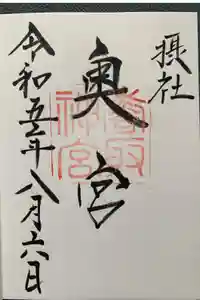 摂社
奥宮
香取
神宮
令和五年八月十六日